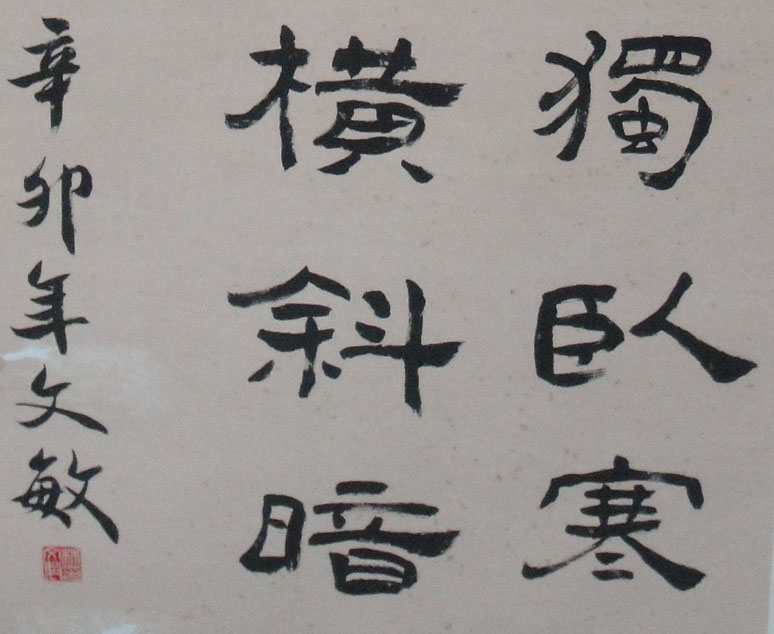 獨臥寒
橫斜暗
辛卯年文敏